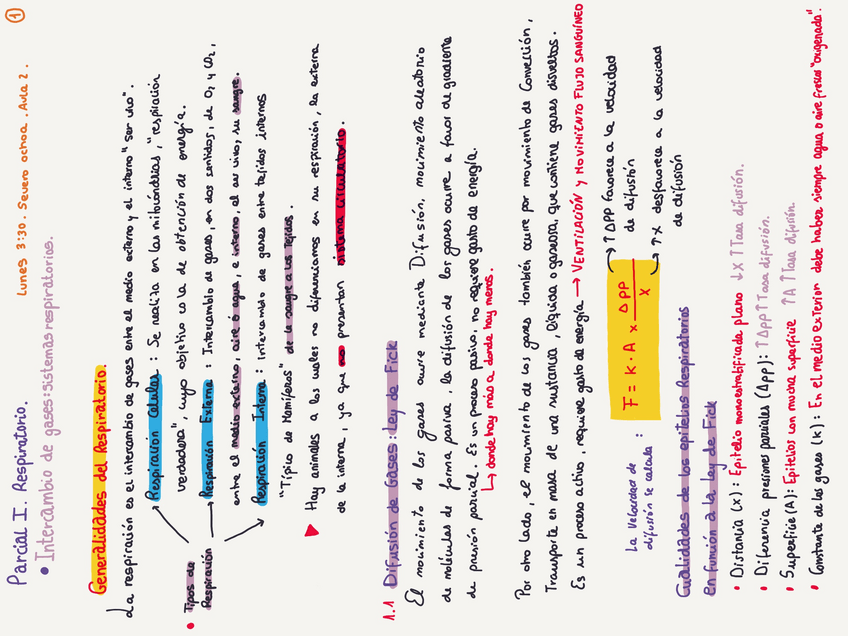 Parcial I. Respiratorio.
Lunes 3:30. Severo ochoa. Aula 2.
1
• Intercambio de gases: sistemas respiratorios.
Generalidades del Respiratorio.
La respiración es el intercambio de gases entre el medio externo y el interno "ser vivo".
• Tipos de Respiración
Respiración Celular: Se realiza en las mitocondrias, "respiración
verdadera", cuyo objetivo es la de obtención de energía.
Respiración Externa: Intercambio de gases, en dos sentidos, de O2 y CO2,
entre el medio externo, aire o agua, e interno, al ser vivo, su sangre.
Respiración Interna: Intercambio de gases entre tejidos internos
"Típico de Mamíferos" de la sangre a los Tejidos.
Hay animales a los cuales no diferenciamos en su respiración, la externa
de la interna, ya que no presentan sistema circulatorio.
1.1 Difusión de Gases: Ley de Fick
El movimiento de los gases ocurre mediante Difusión, movimiento aleatorio
de moléculas de forma pasiva, la difusión de los gases ocurre a favor de gradiente
de presión parcial. Es un proceso pasivo, no requiere gasto de energía.
↳ donde hay más a donde hay menos.
Por otro lado, el movimiento de los gases también ocurre por movimiento de Convección,
Transporte en masa de una sustancia, líquida o gaseosa, que contiene gases disueltos.
Es un proceso activo, requiere gasto de energía. → VENTILACIÓN y MOVIMIENTO FLUJO SANGUÍNEO
La velocidad de
difusión se calcula:
F = K · A x ΔPP / X
↑ΔPP favorece a la velocidad
de difusión
↑X desfavorece a la velocidad
de difusión
Cualidades de los epitelios Respiratorios
en función a la Ley de Fick
• Distancia (x): Epitelio monoestratificado plano ↓X ↑Tasa difusión.
• Diferencia presiones parciales (Δpp): ↑ΔPP ↑Tasa difusión.
• Superficie (A): Epitelios con mucha superficie ↑A ↑Tasa difusión.
• Constante de los gases (k): En el medio exterior debe haber siempre agua o aire fresco "oxigenado".